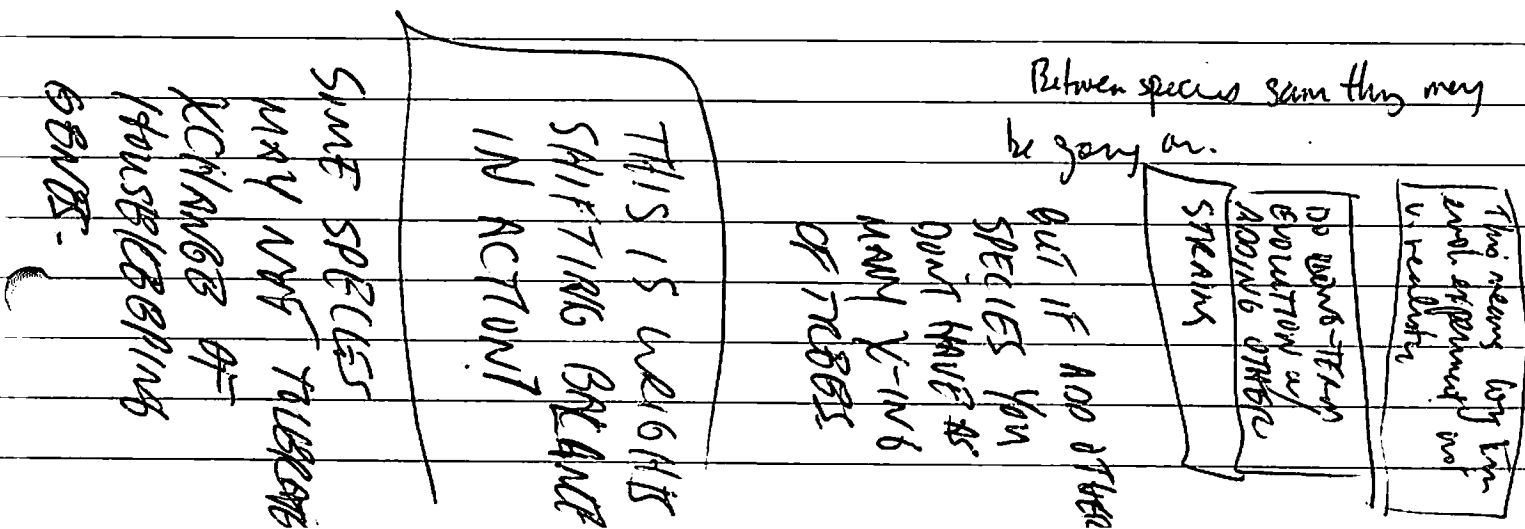 Between species same thing may
be going on.
This means long time
evol. experiment not
v. realistic
DO LONG-TERM
EVOLUTION w/
ADDING OTHER
STRAINS
BUT IF ADD OTHER
SPECIES YOU
DON'T HAVE AS
MANY X-ING
OF
THIS IS WRIGHTS
SHIFTING BALANCE
IN ACTION!
SOME SPECIES
MAY NOT TOLERATE
XCHANGE OF
HOUSEKEEPING
GENES.